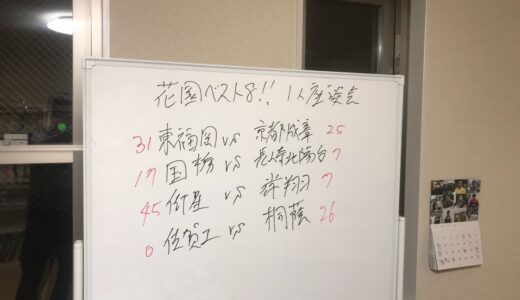 花園ベスト8!! 1人座談会
31 東福岡 vs 京都成章 25
17 国栃 vs 長崎北陽台 7
45 衛星 vs 祥翔 7
0 佐賀工 vs 桐蔭 26